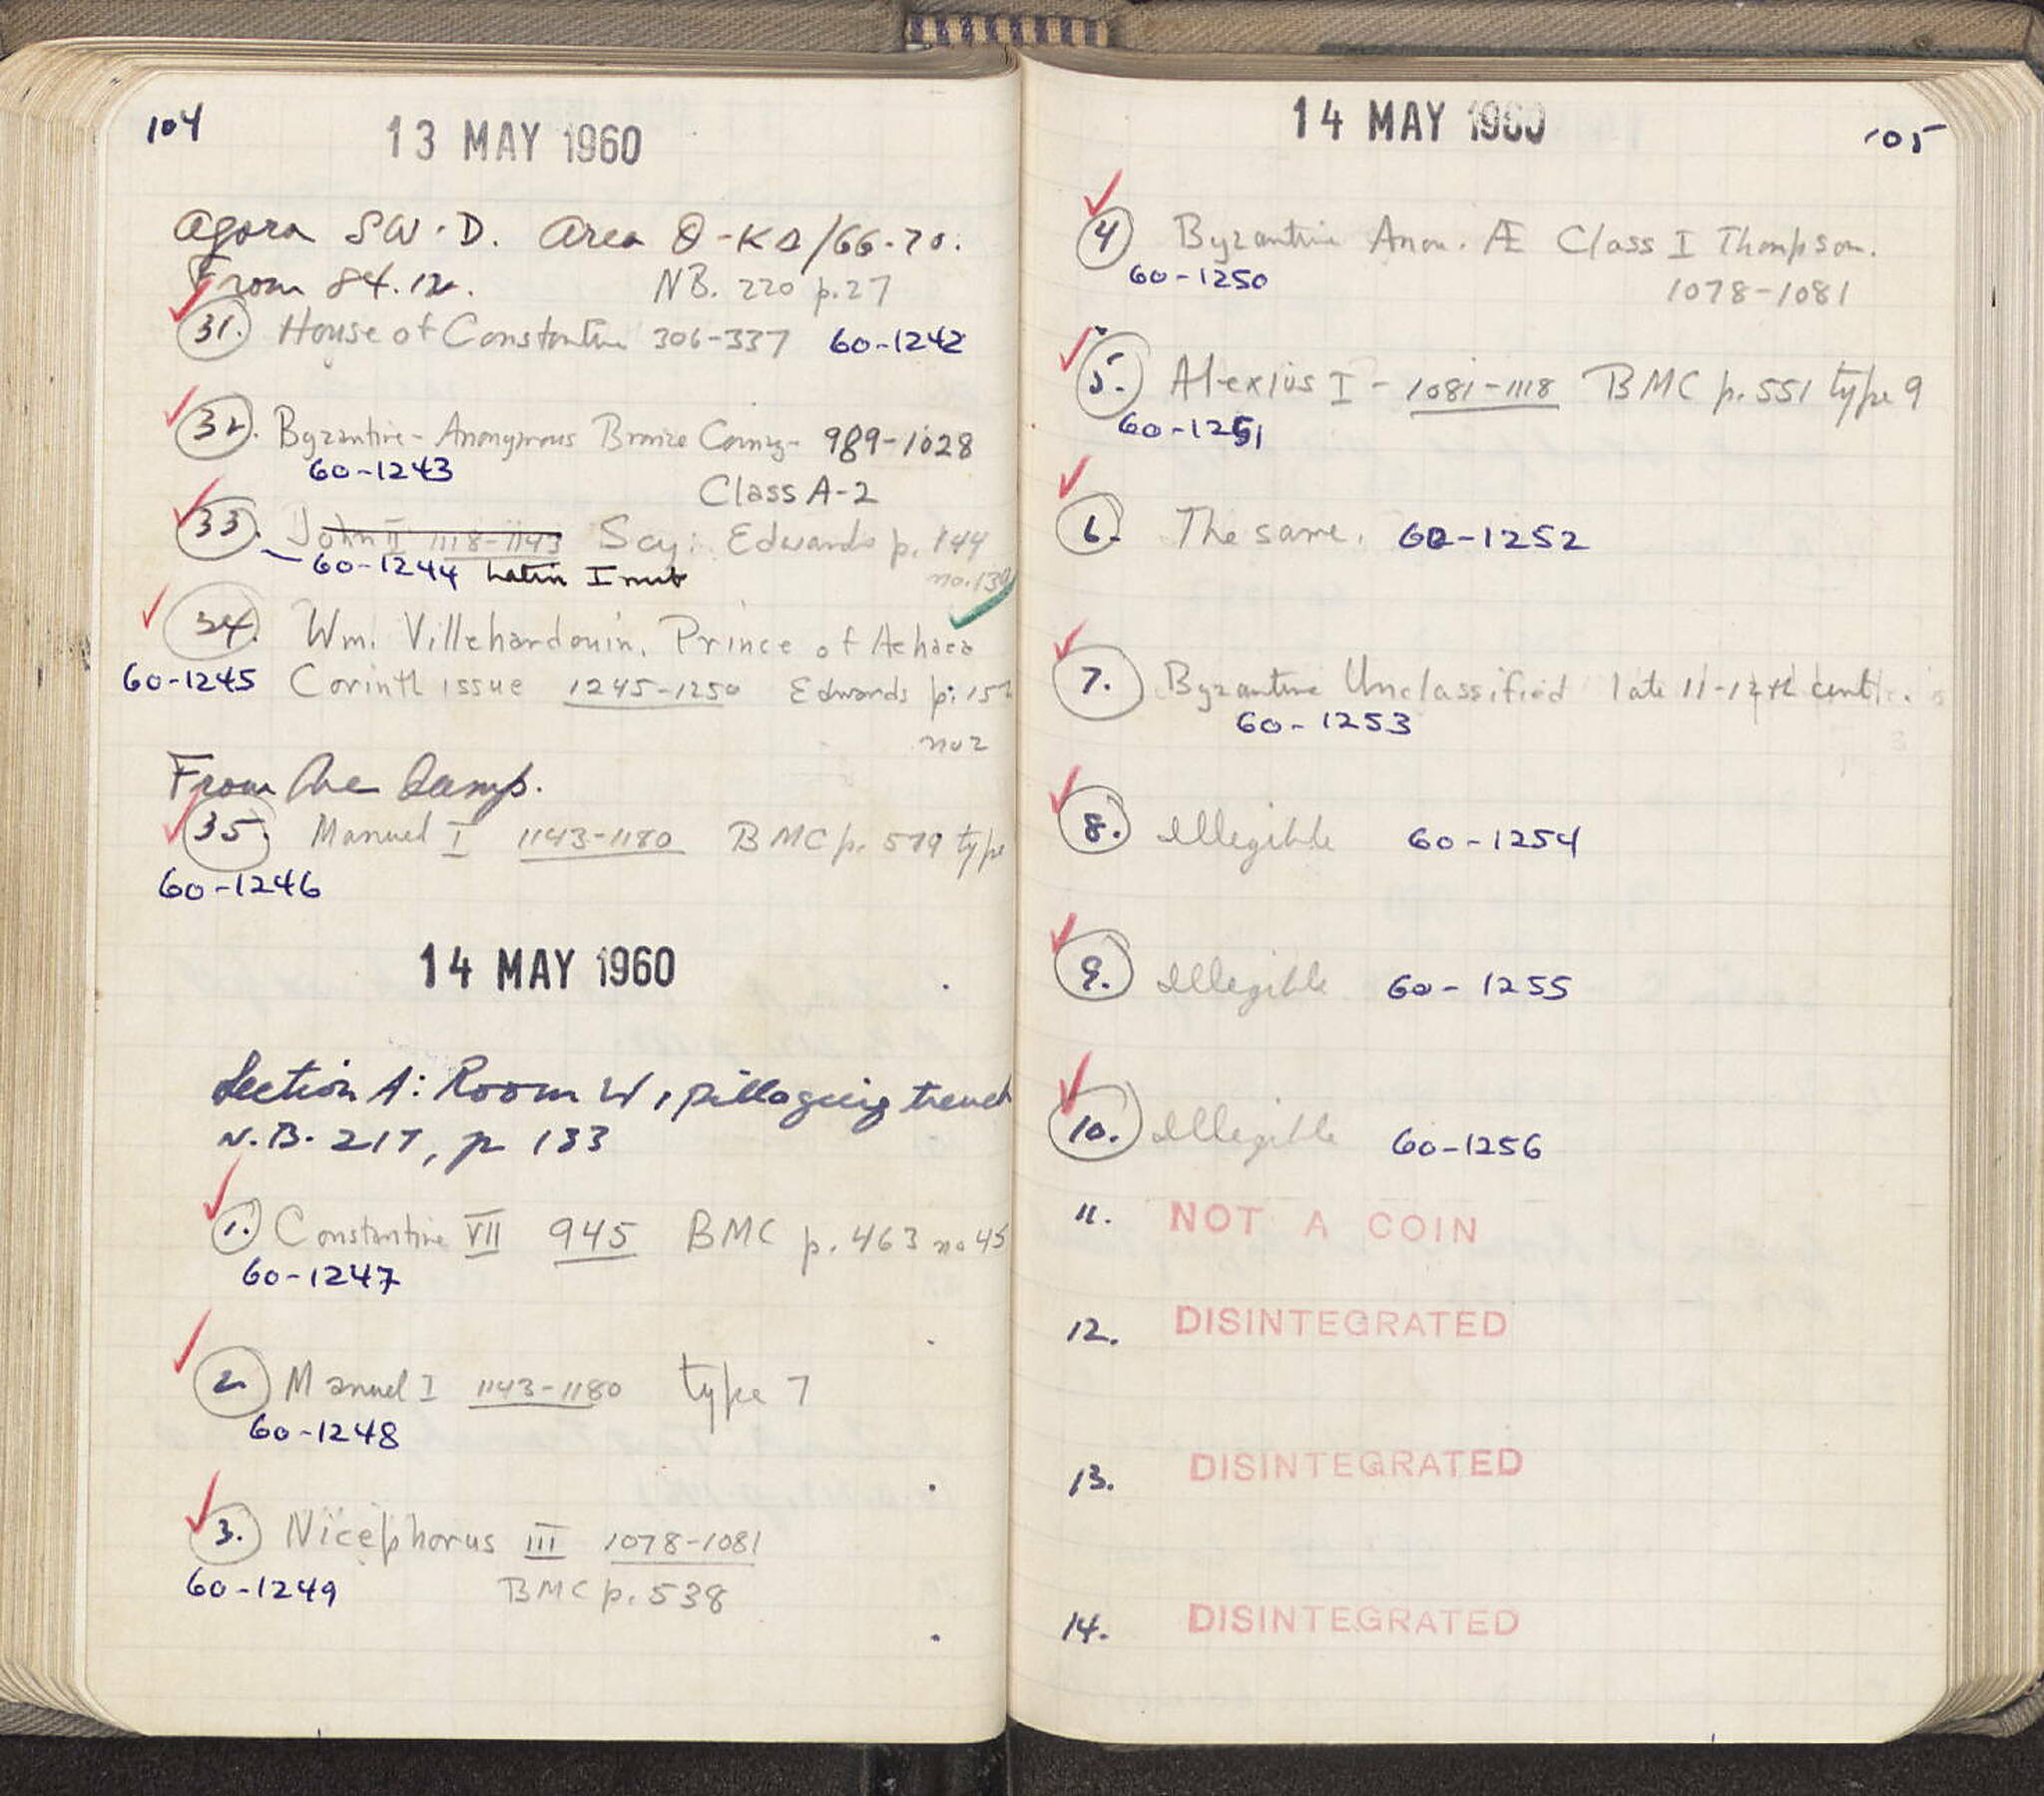 104
13 MAY 1960
Agora SW. D. Area Θ-ΚΔ/66-70.
From 84.12. NB. 220 p.27
31. House of Constantine 306-337 60-1242
32. Byzantine - Anonymous Bronze Coinage - 989-1028
60-1243
Class A-2
33. John II 1118-1143 Scy: Edwards p. 144
60-1244 Latin Imit no. 130
34. Wm. Villehardouin, Prince of Achaea
60-1245 Corinth issue 1245-1250 Edwards p. 152
no 2
From the dump.
35. Manuel I 1143-1180 BMC p. 579 type
60-1246
14 MAY 1960
Section A: Room W, pillaging trench
N.B. 217, p 133
1. Constantine VII 945 BMC p. 463 no 45
60-1247
2. Manuel I 1143-1180 type 7
60-1248
3. Nicephorus III 1078-1081
60-1249 BMC p. 538
14 MAY 1960
105
4 Byzantine Anon. Æ Class I Thompson.
60-1250 1078-1081
5. Alexius I - 1081-1118 BMC p. 551 type 9
60-1251
6. The same. 60-1252
7. Byzantine Unclassified late 11-12th cent.
60-1253
8. Illegible 60-1254
9. Illegible 60-1255
10. Illegible 60-1256
11. NOT A COIN
12. DISINTEGRATED
13. DISINTEGRATED
14. DISINTEGRATED